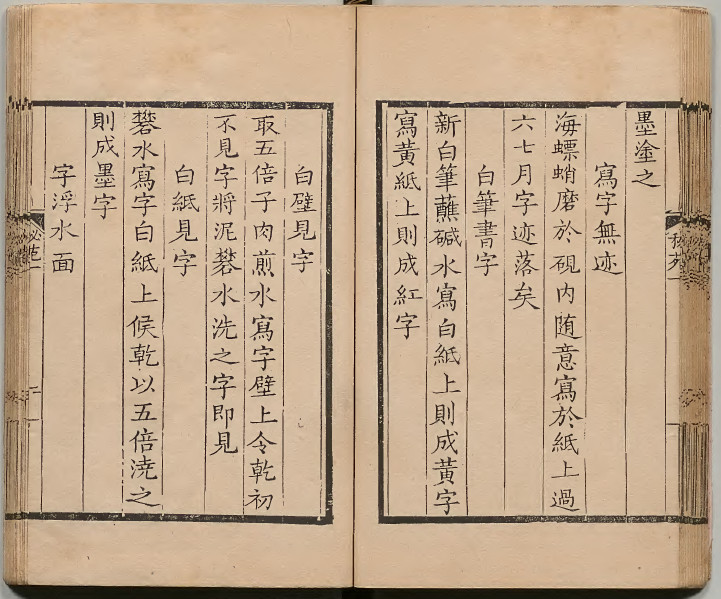 墨塗之
寫字無迹
海螵蛸磨於硯內随意寫於紙上過
六七月字迹落矣
白筆書字
新白筆蘸碱水寫白紙上則成黃字
寫黃紙上則成紅字
白壁見字
取五倍子肉煎水寫字壁上令乾初
不見字將泥礬水洗之字即見
白紙見字
礬水寫字白紙上候乾以五倍澆之
則成墨字
字浮水面